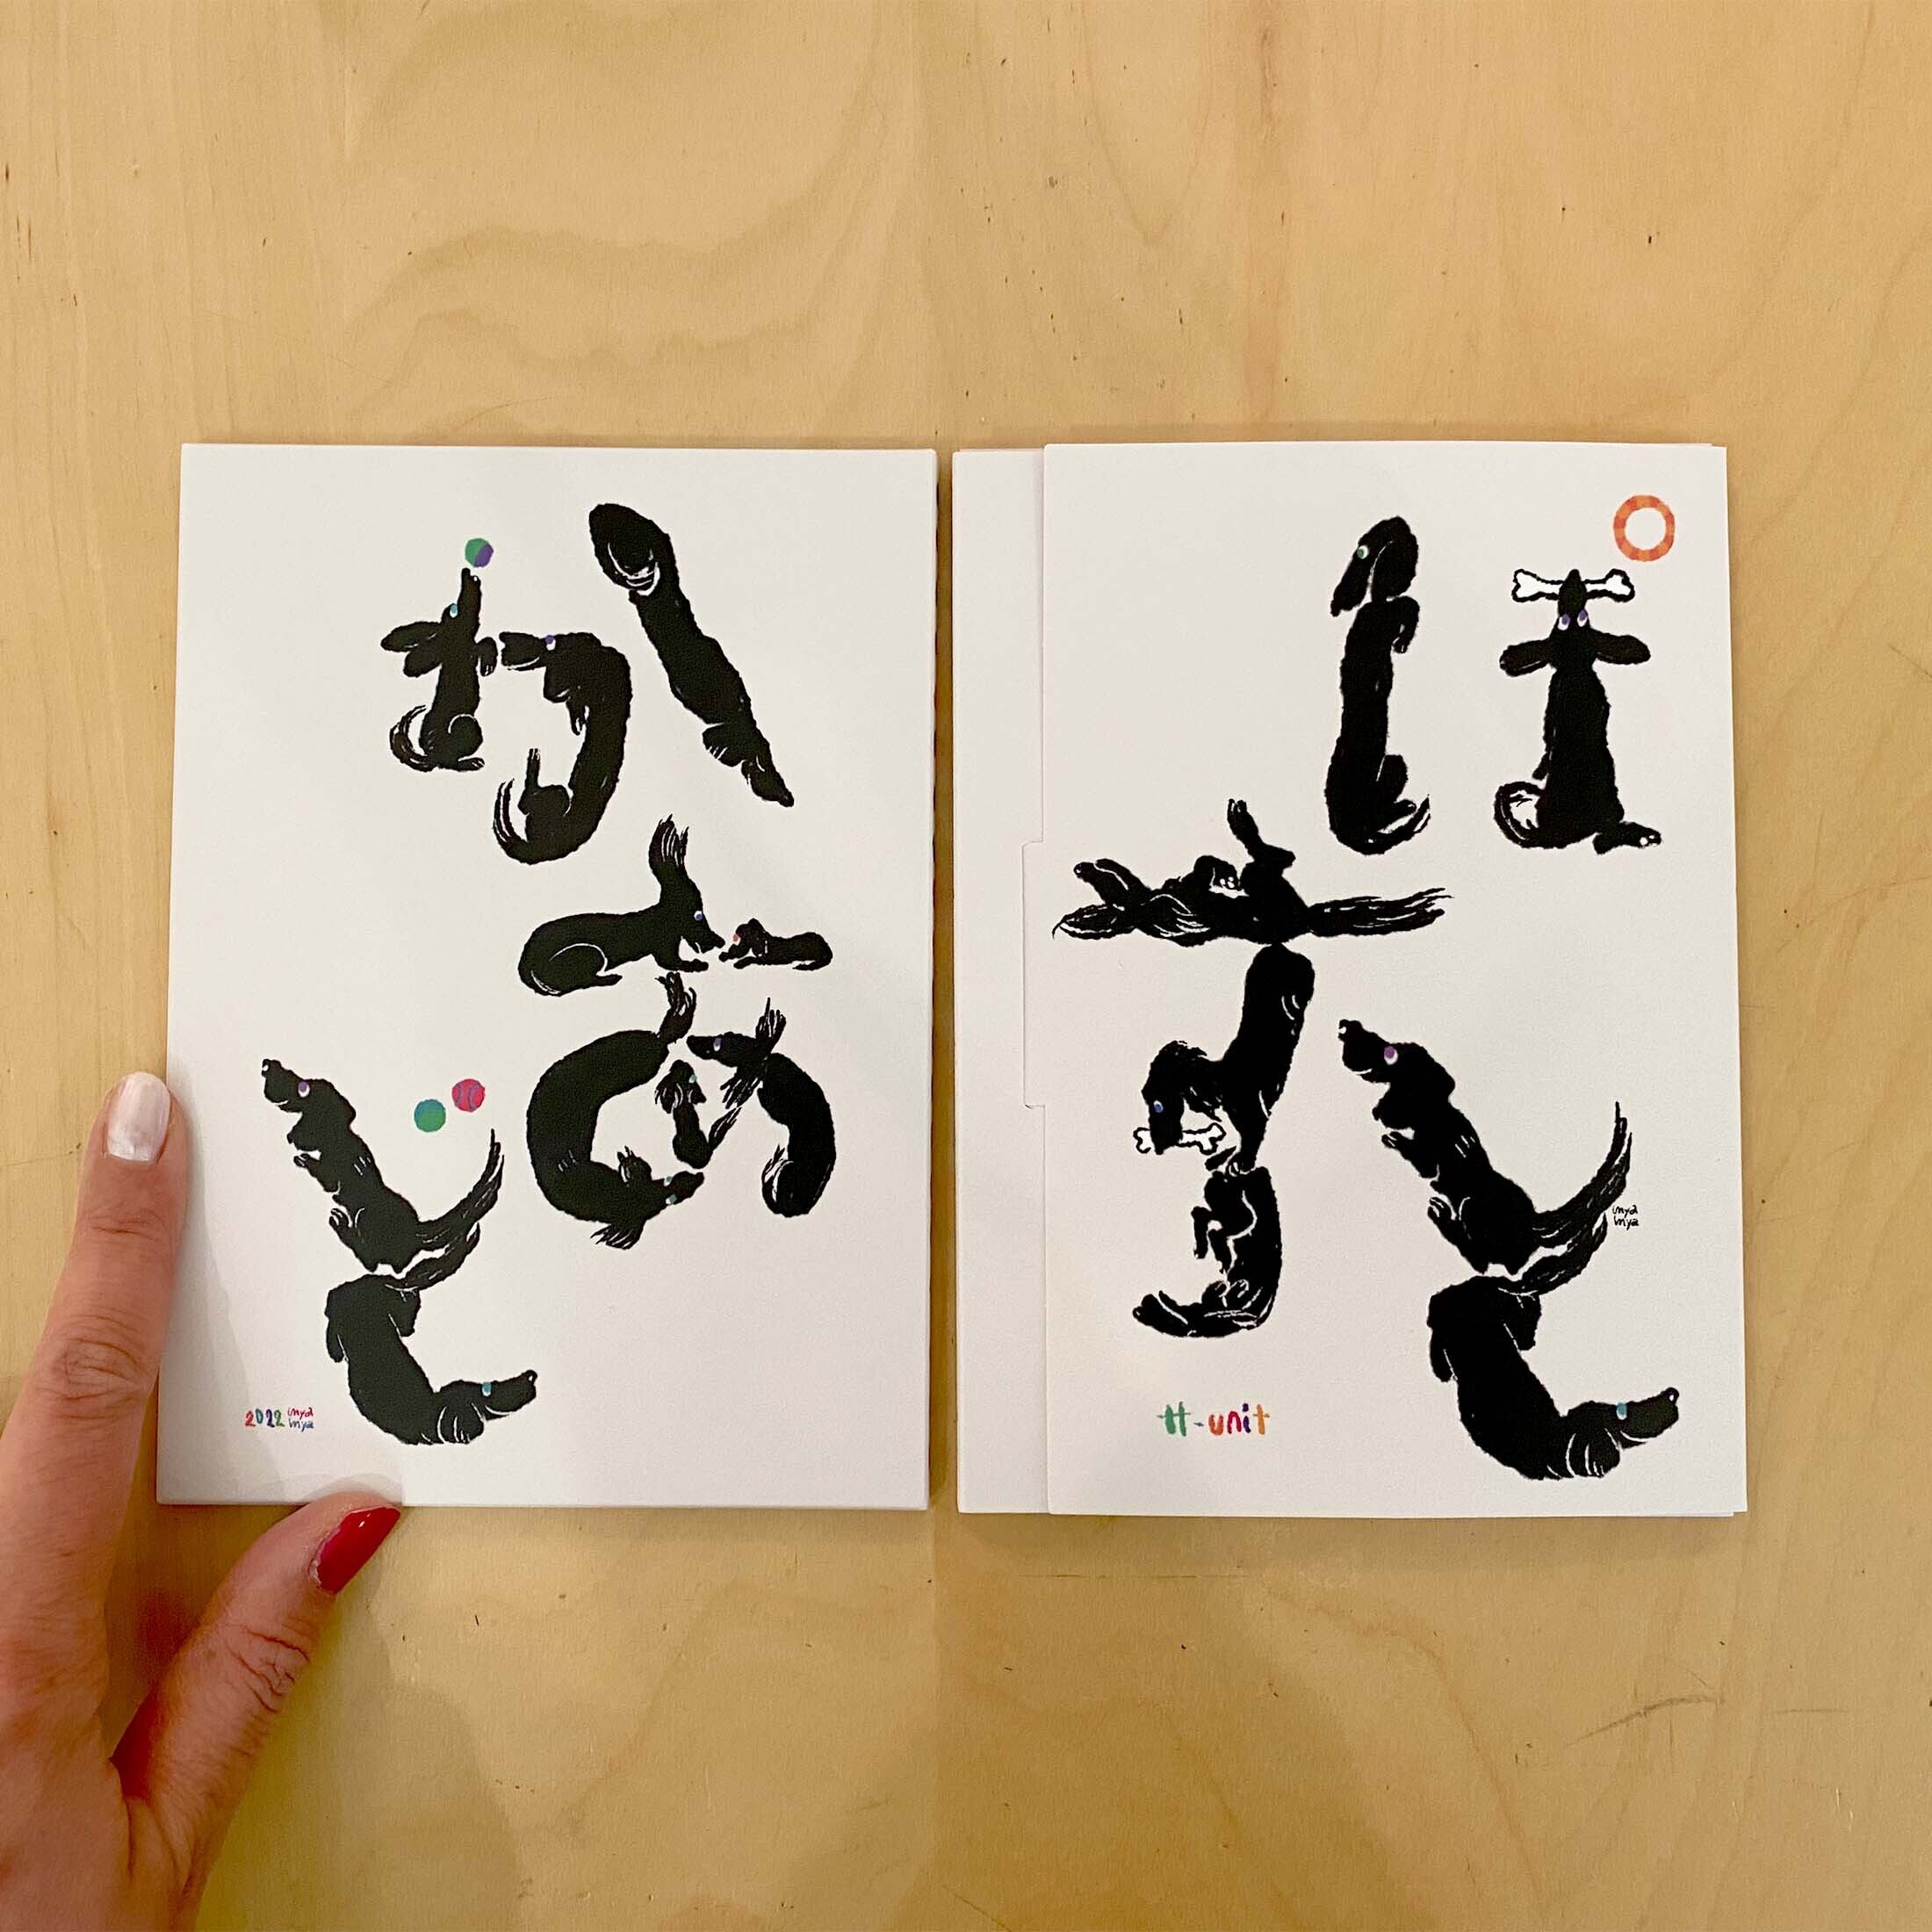 ぽすと
inya
inya
tt-unit
かあど
2022 inya
inya